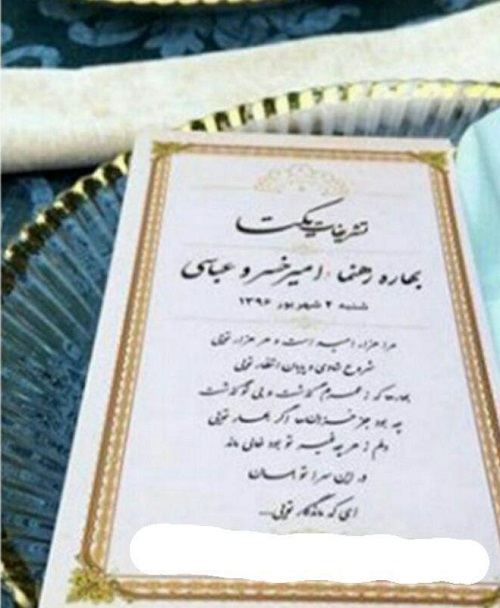 تشریفات یکتا
بهاره رهنما : امیرخسرو عباسی
شنبه ۴ شهریور ۱۳۹۶
مرا هزار امید است و هر هزار تویی
شروع شادی و پایان انتظار تویی
بهارها که ز عمرم گذشت و بی تو گذشت
چه بود جز خزان‌ها اگر بهار تویی
دلم ز هر چه به غیر تو بود خالی ماند
در این سرا تو بمان
ای که ماندگار تویی...